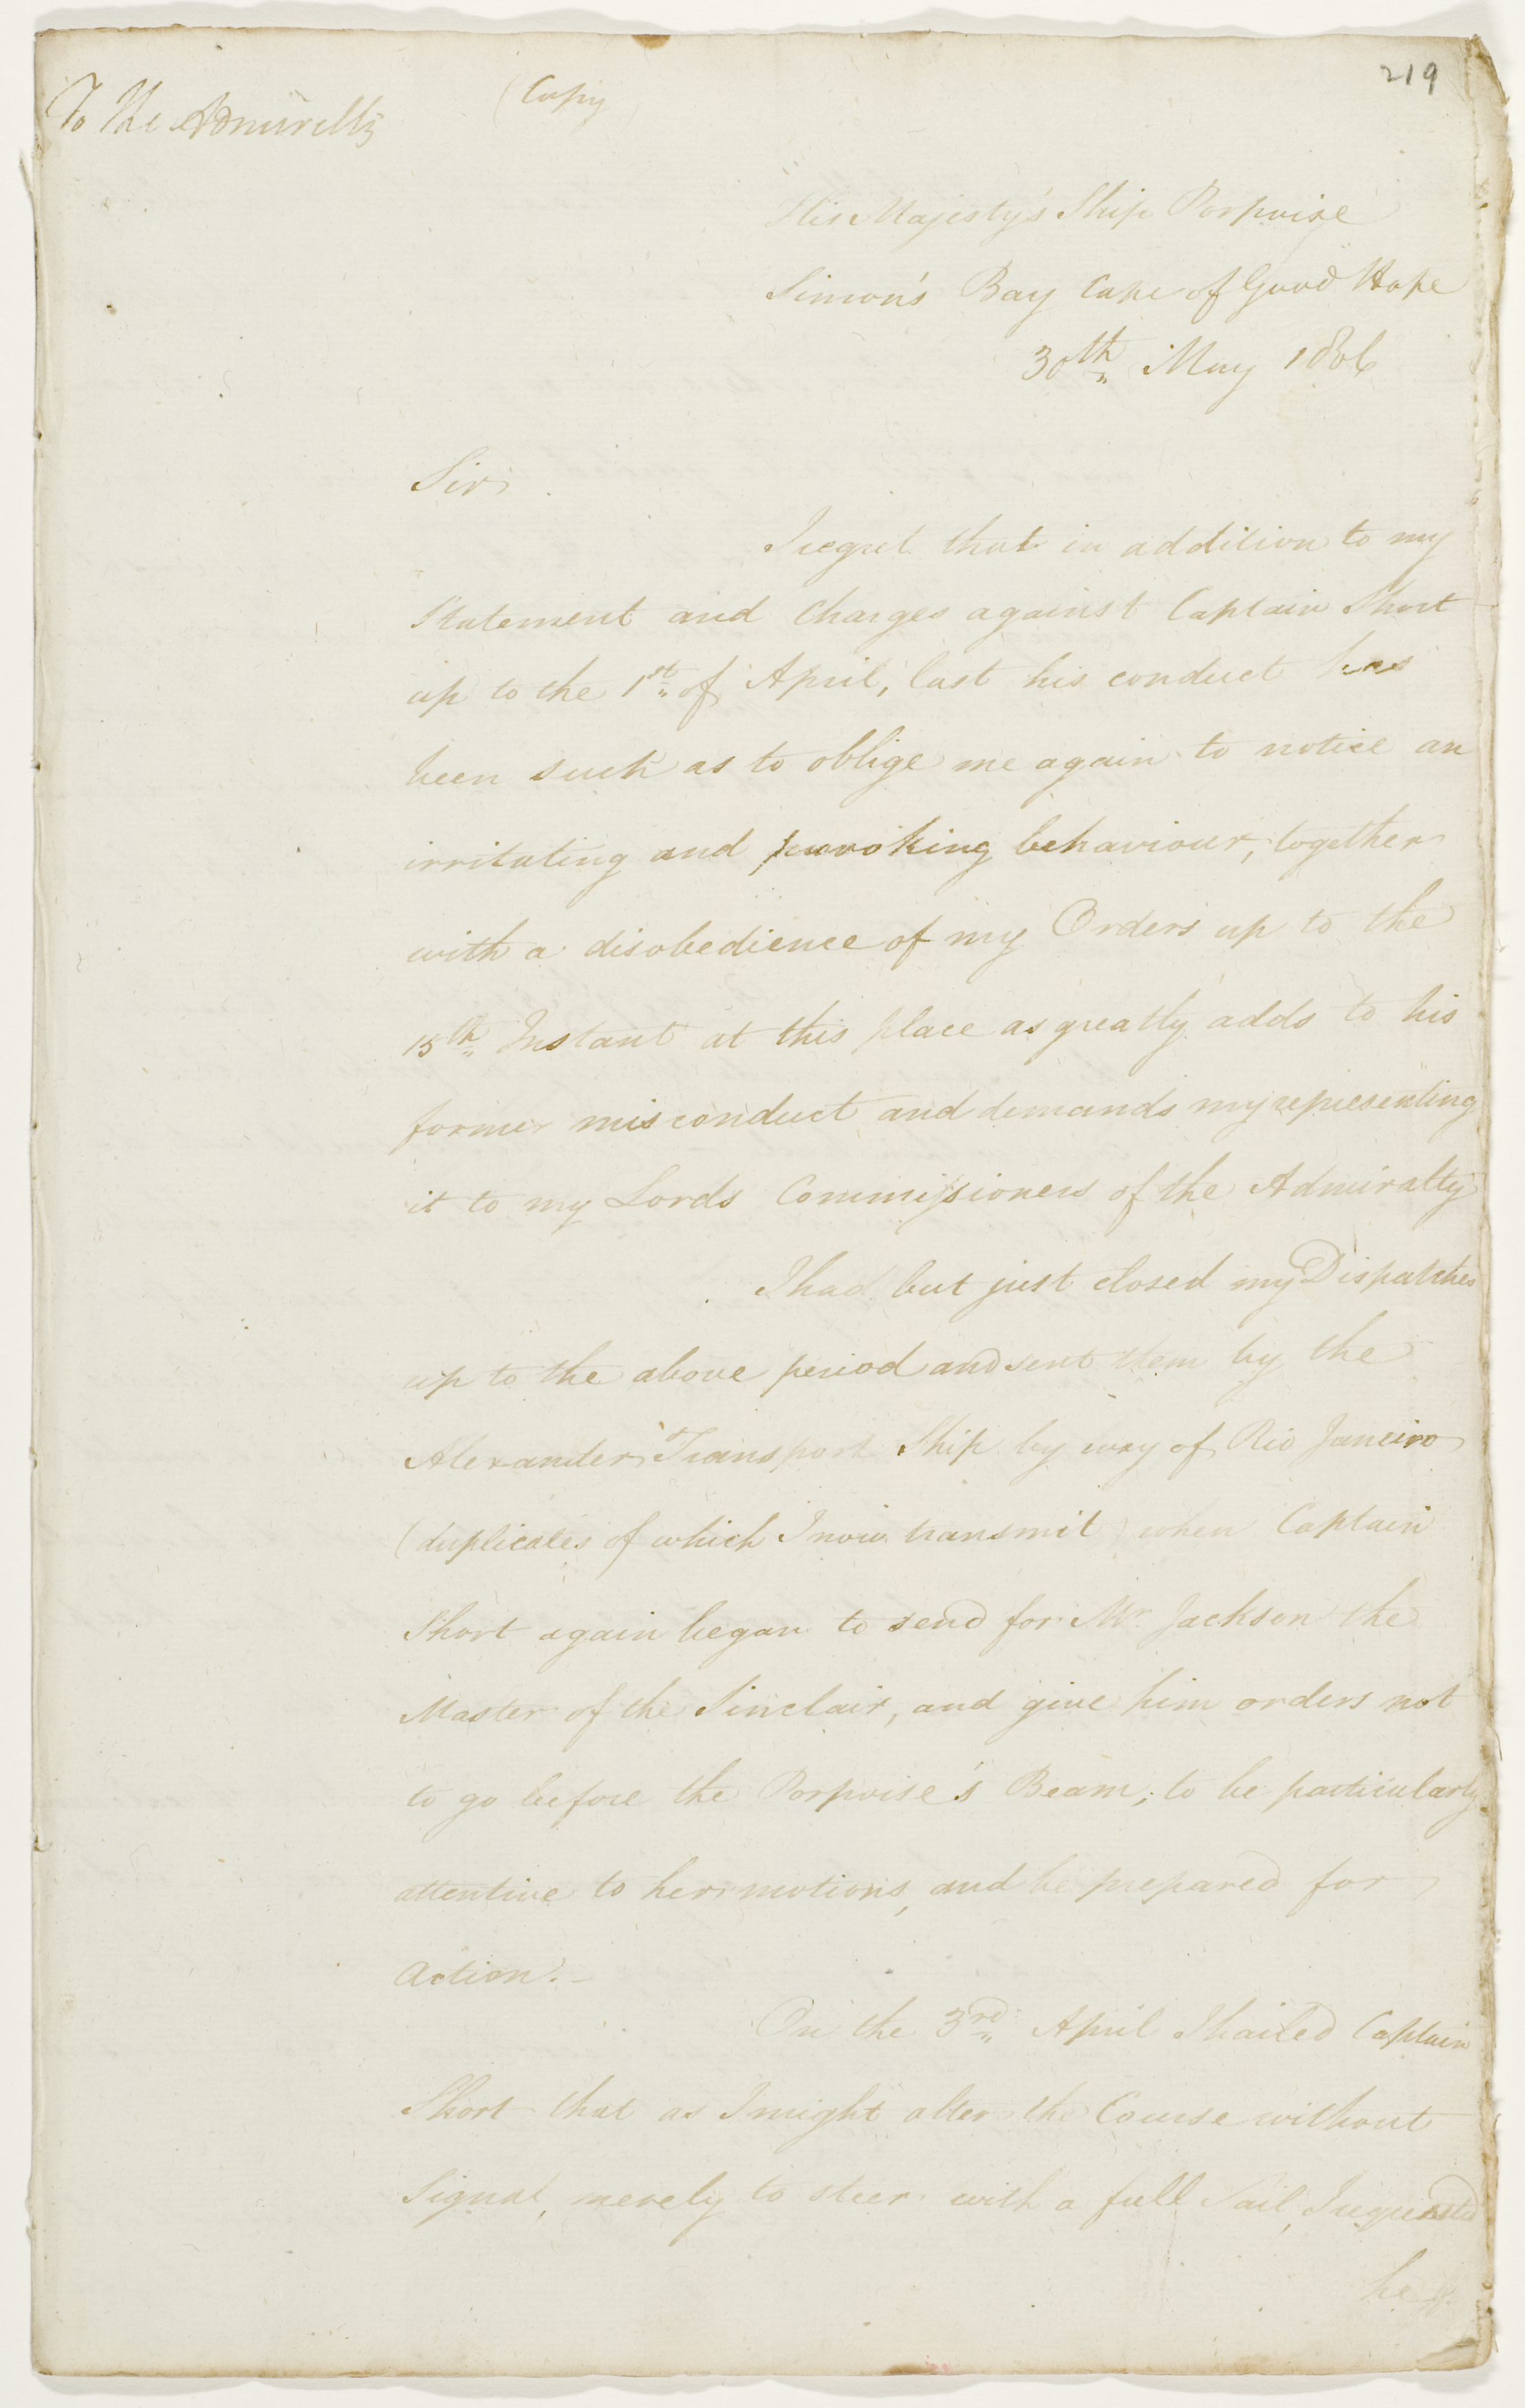 219
To the Admiralty
(Copy
His Majesty's Ship Porpoise
Simon's Bay Cape of Good Hope
30th May 1806
Sir
I regret that in addition to my
Statement and Charges against Captain Short
up to the 1st of April, last his conduct has
been such as to oblige me again to notice an
irritating and provoking behaviour, together
with a disobedience of my Orders up to the
15th Instant at this place as greatly adds to his
former misconduct and demands my representing
it to my Lords Commissioners of the Admiralty
I had but just closed my Dispatches
up to the above period and sent them by the
Alexander Transport Ship by way of Rio Janeiro
(duplicates of which I now transmit) when Captain
Short again began to send for Mr Jackson the
Master of the Sinclair, and give him orders not
to go before the Porpoise's Beam; to be particularly
attentive to her motions, and be prepared for
action.-
On the 3rd April I hailed Captain
Short that as I might alter the Course without
Signal, merely to steer with a full Sail, I requested
he